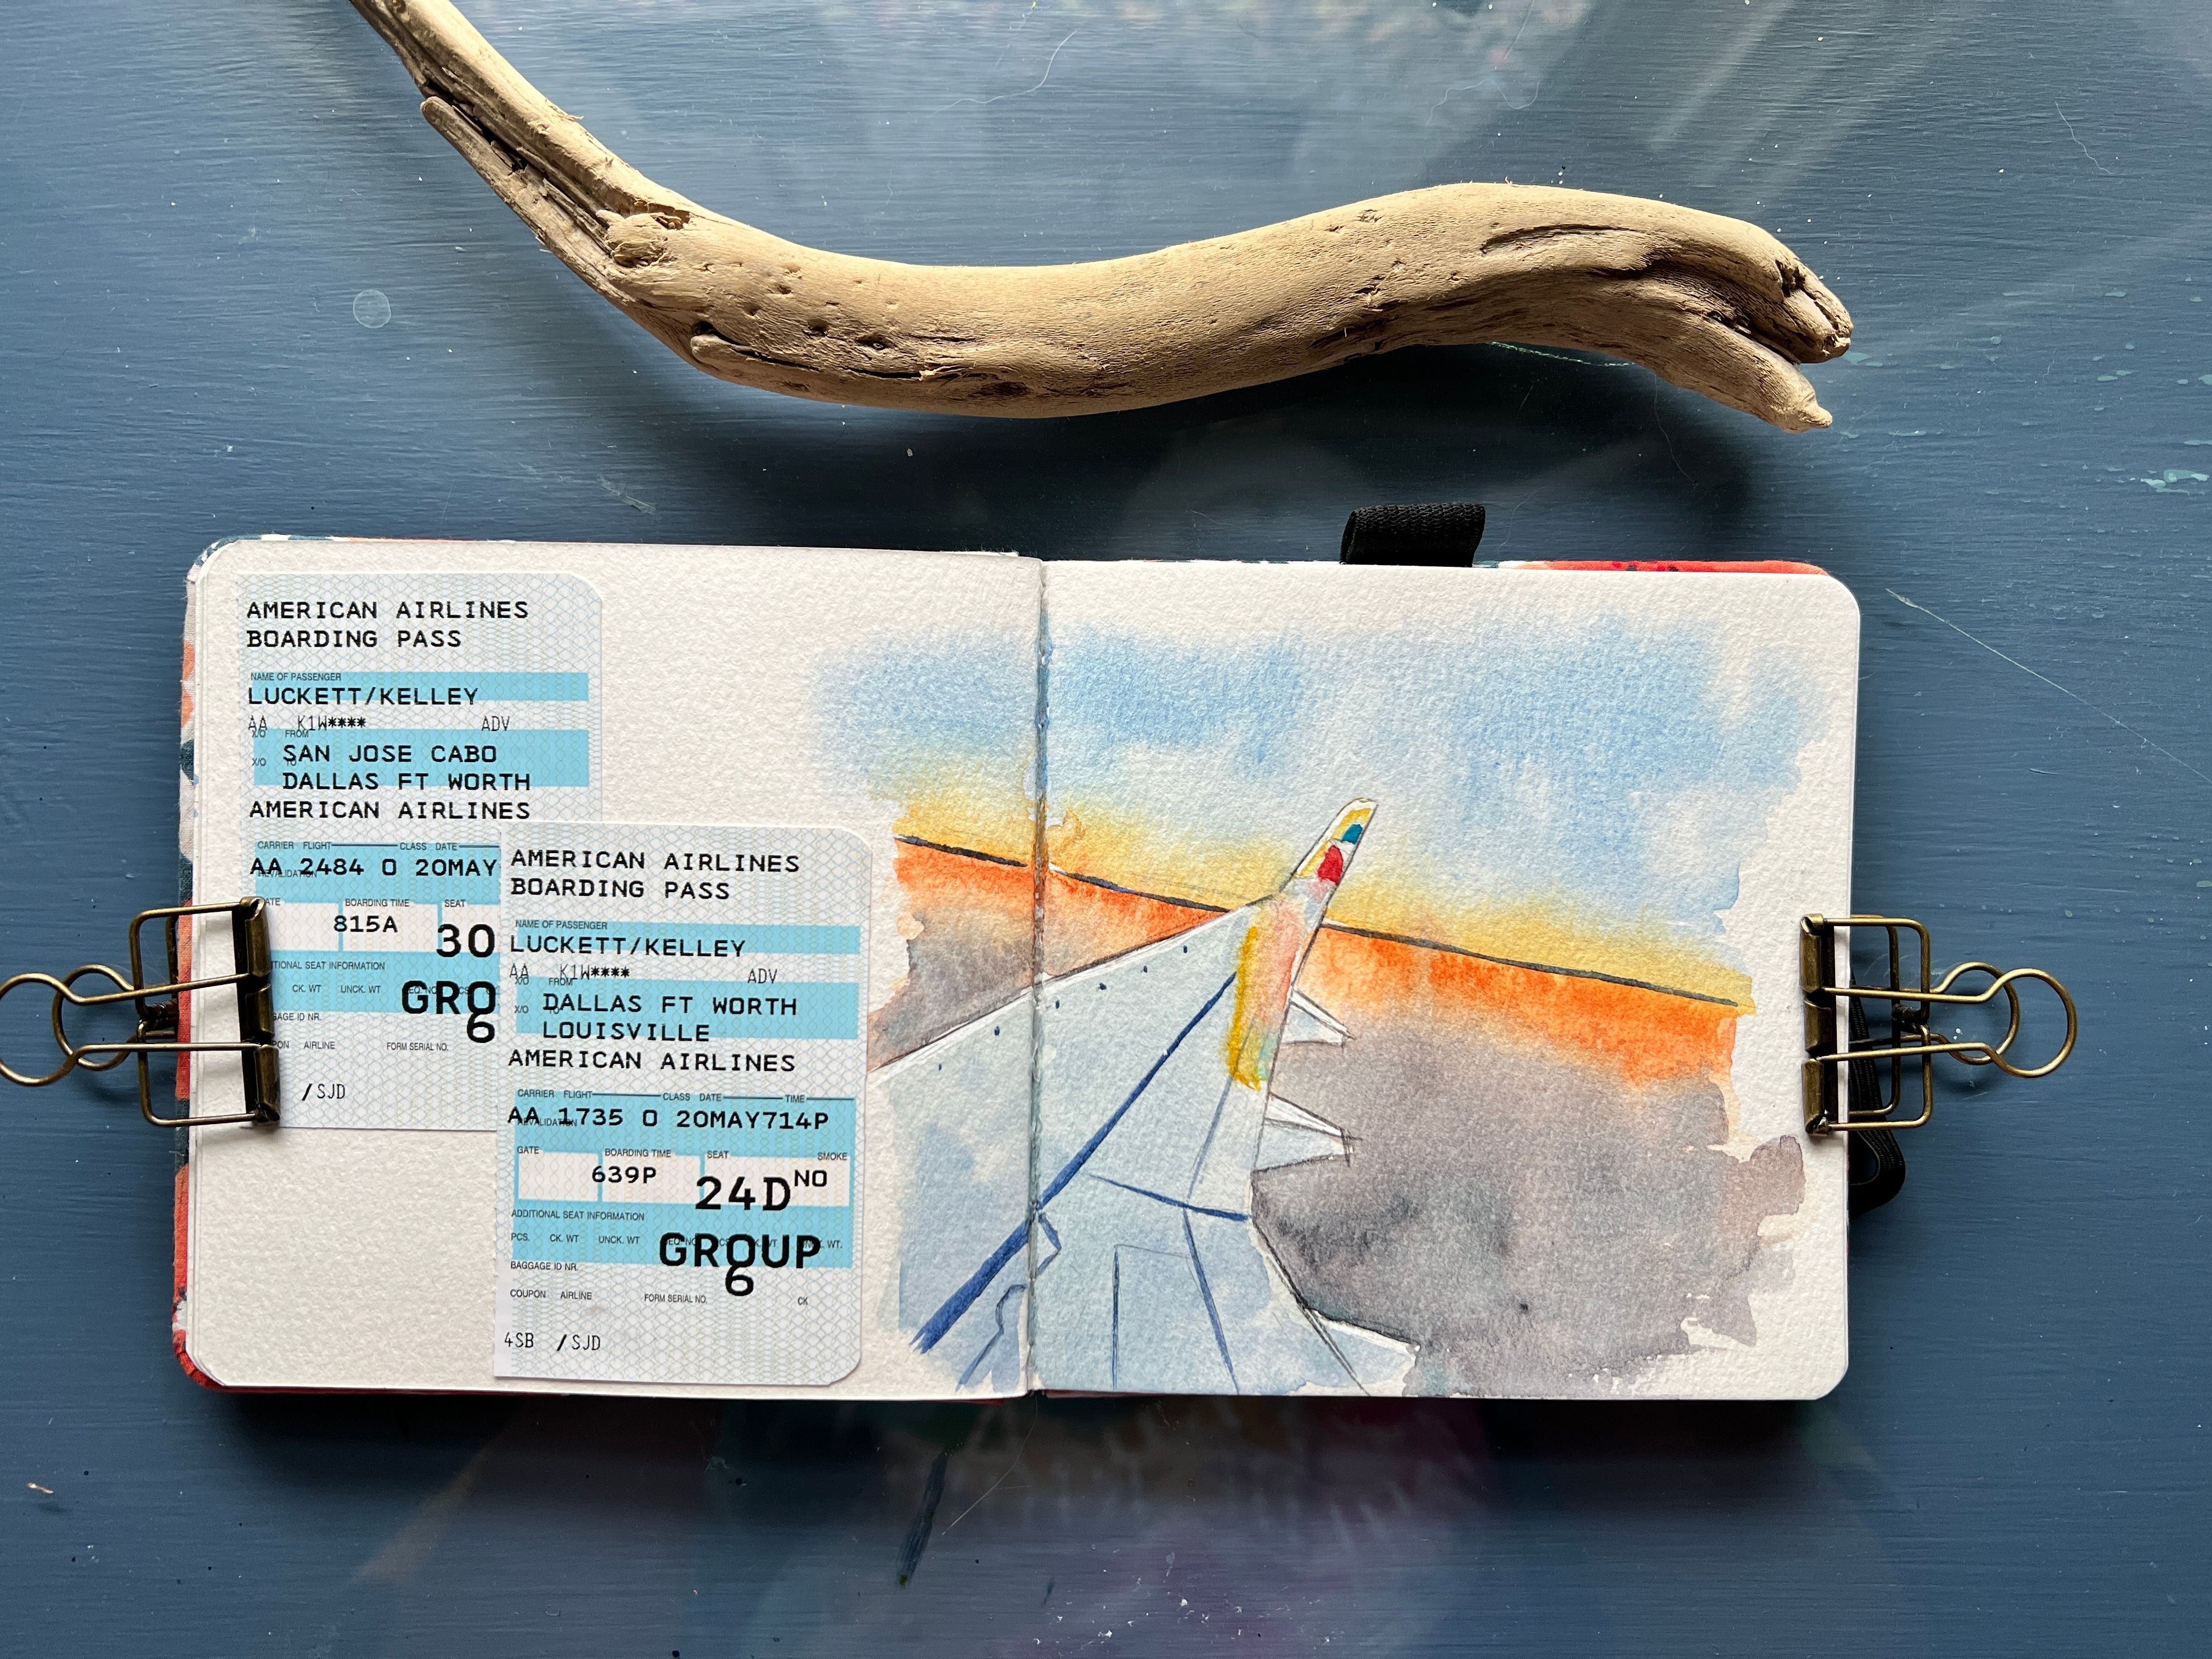 AMERICAN AIRLINES
BOARDING PASS
NAME OF PASSENGER
LUCKETT/KELLEY
AA K1W**** ADV
X/O FROM
SAN JOSE CABO
X/O
DALLAS FT WORTH
AMERICAN AIRLINES
CARRIER FLIGHT CLASS DATE
AA 2484 O 20MAY
BOARDING TIME SEAT
815A 30
SEAT INFORMATION
CK. WT UNCK. WT
GRO
6
ID NR.
AIRLINE FORM SERIAL NO.
/SJD
AMERICAN AIRLINES
BOARDING PASS
NAME OF PASSENGER
LUCKETT/KELLEY
AA K1W**** ADV
X/O FROM
DALLAS FT WORTH
X/O
LOUISVILLE
AMERICAN AIRLINES
CARRIER FLIGHT CLASS DATE TIME
AA 1735 O 20MAY714P
GATE BOARDING TIME SEAT SMOKE
639P 24D NO
ADDITIONAL SEAT INFORMATION
PCS. CK. WT UNCK. WT
GROUP
6
BAGGAGE ID NR.
COUPON AIRLINE FORM SERIAL NO. CK
4SB /SJD